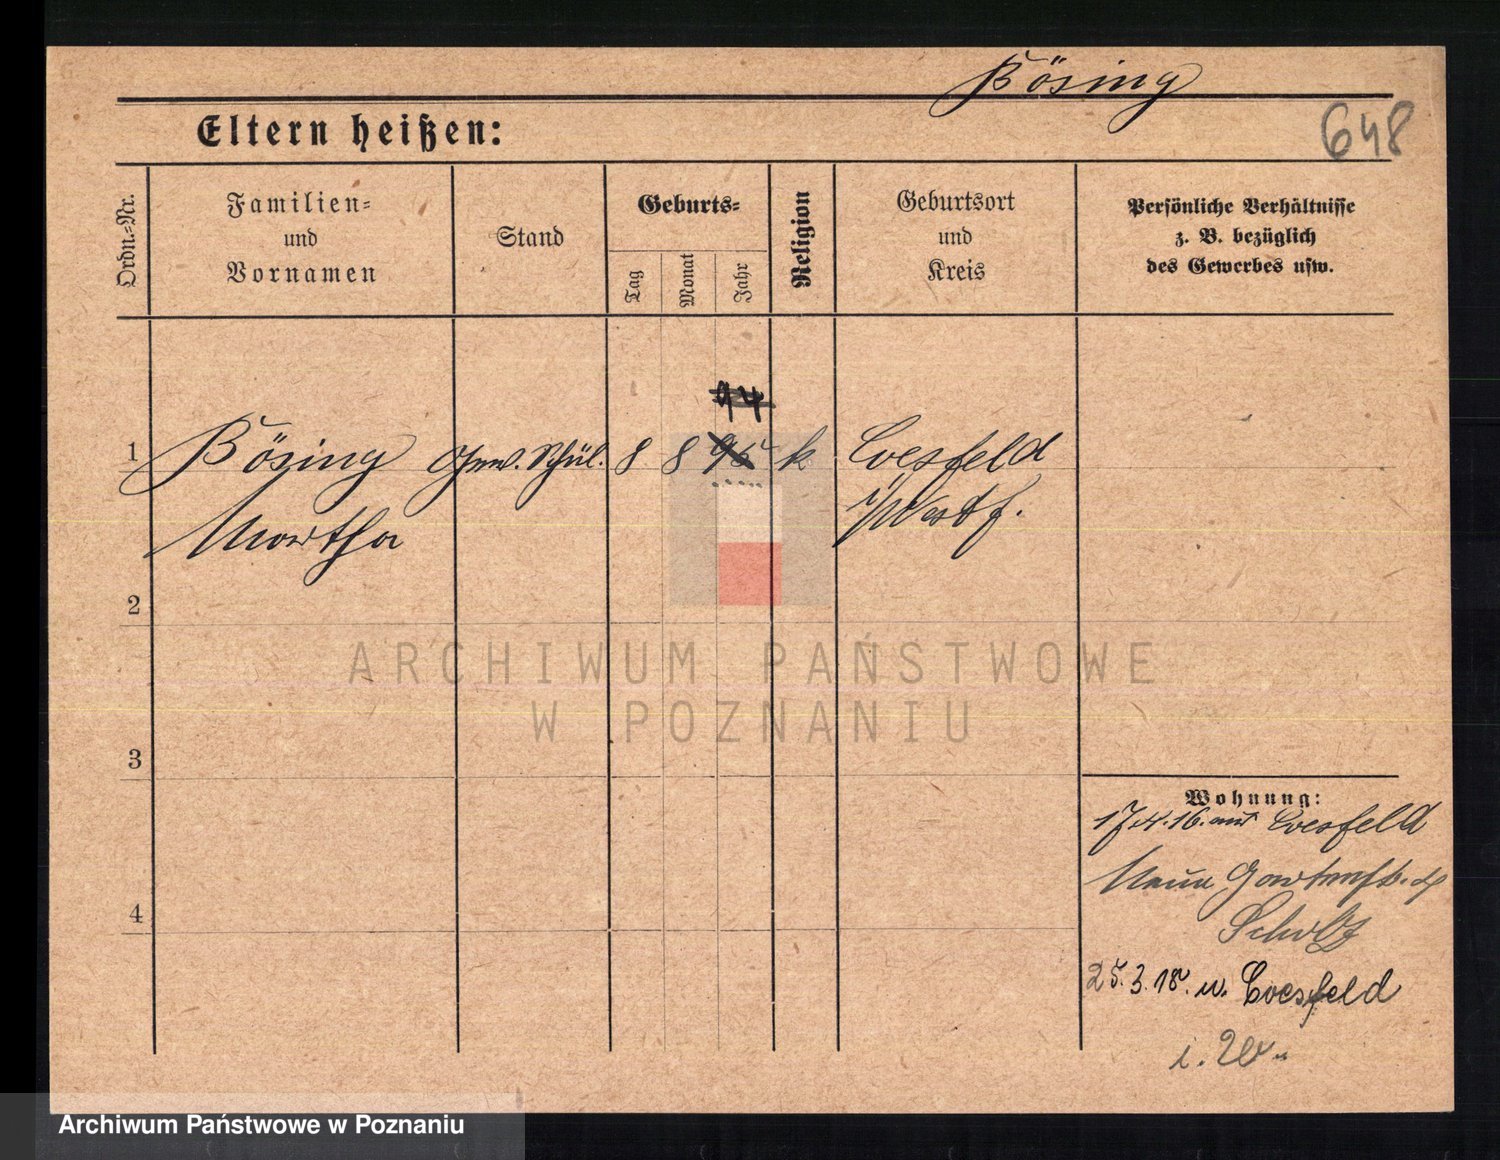 Bösing
648
Eltern heißen:
Ordn.-Nr.
Familien-
und
Vornamen
Stand
Geburts-
Tag
Monat
Jahr
Religion
Geburtsort
und
Kreis
Persönliche Verhältnisse
z. B. bezüglich
des Gewerbes usw.
94
1 Bösing Gew. Schül. 8 8 95 k Coesfeld
Martha i/Westf.
2
3
4
ARCHIWUM PAŃSTWOWE
W POZNANIU
Wohnung:
17.4.16. aus Coesfeld
Neue Gartenstr.
Scholz
25.3.18. n. Coesfeld
i. W.
Archiwum Państwowe w Poznaniu